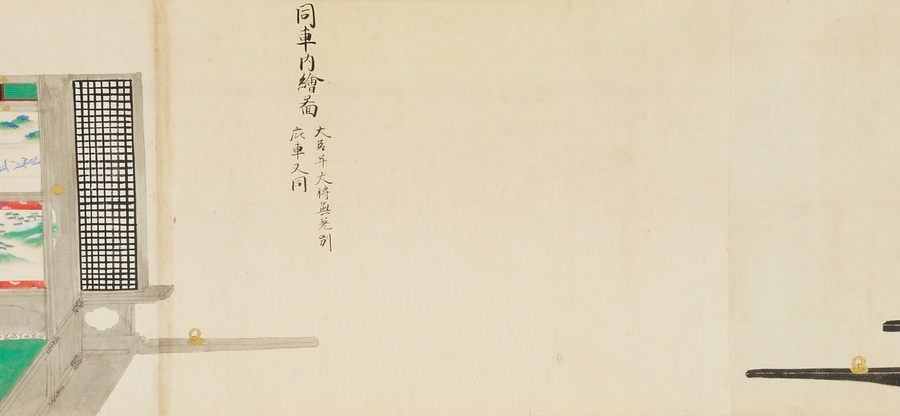 同車内繪圖
大臣并大将無差別
庇車又同